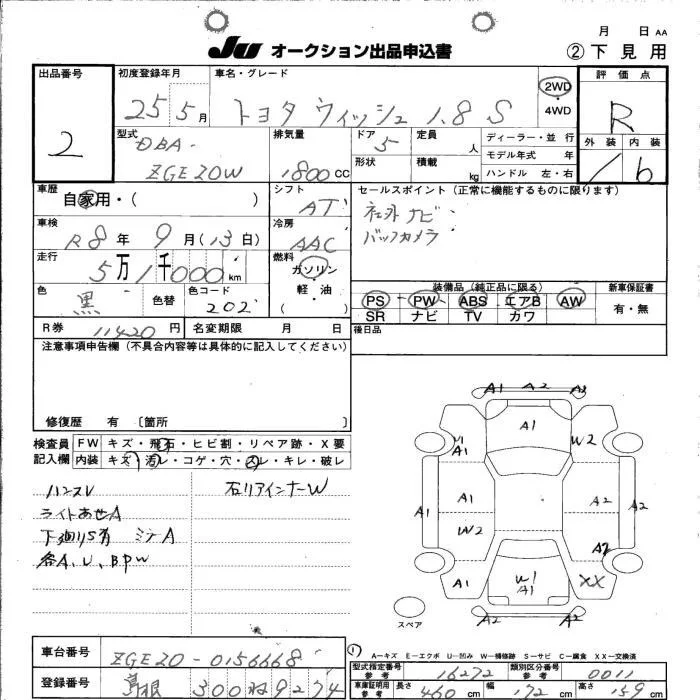 月 日 AA
JU オークション出品申込書 ②下見用
出品番号 初度登録年月 車名・グレード 2WD 4WD 評価点
2 25年5月 トヨタ ウィッシュ 1.8 S R
型式 排気量 ドア 定員 ディーラー・並行 外装 内装
DBA- 5 人 モデル年式 年
ZGE20W 1800CC 形状 積載 kg ハンドル 左・右 / b
車歴 自家用・( ) シフト セールスポイント(正常に機能するものに限ります)
AT 社外ナビ
車検 R8年9月(13日) 冷房 AAC バックカメラ
走行 5万1千000km 燃料 ガソリン
軽・油 ( ) 装備品(純正品に限る) 新車保証書
色 黒 色替 色コード 202 PS PW ABS エアB AW 有・無
SR ナビ TV カワ
R券 11420円 名変期限 月 日 後日品
注意事項申告欄(不具合内容等は具体的に記入してください)
修復歴 有 〔箇所 〕
検査員 FW キズ・飛石・ヒビ割・リペア跡・X要
記入欄 内装 キズ・汚レ・コゲ・穴・スレ・キレ・破レ
ハンスレ 石リアインナーW
ライトあせA
下廻りS有 ミラーA
各A、U、BPW
A1 A2 A2
A1
A1 W2
A1 A1 A2 A2
W2
A2
A1 W1 A1 XX
A2 A2
スペア
A-キズ E-エクボ U-凹み W-補修跡 S-サビ C-腐食 XX-交換済
車台番号 ZGE20-0156668
型式指定番号 参考 16272 類別区分番号 参考 0011
登録番号 島根 300 ね 9274
車庫証明用 参考 長さ 460cm 幅 172cm 高さ 159cm